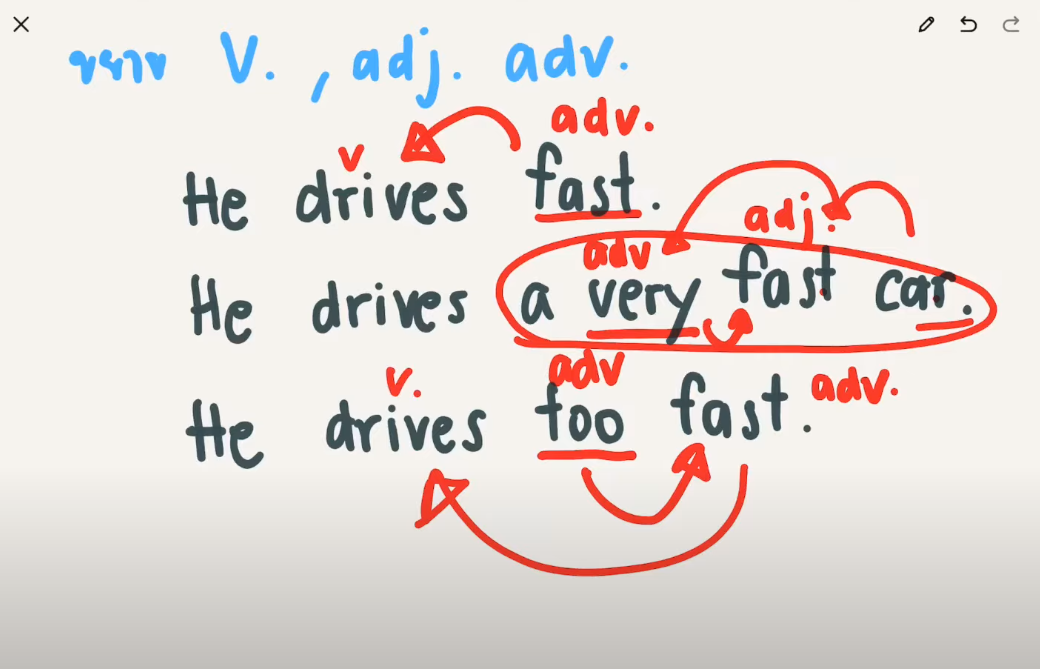 ขยาย V. , adj. adv.
adv.
v
He drives fast.
adj.
adv
He drives a very fast car.
v. adv adv.
He drives too fast.